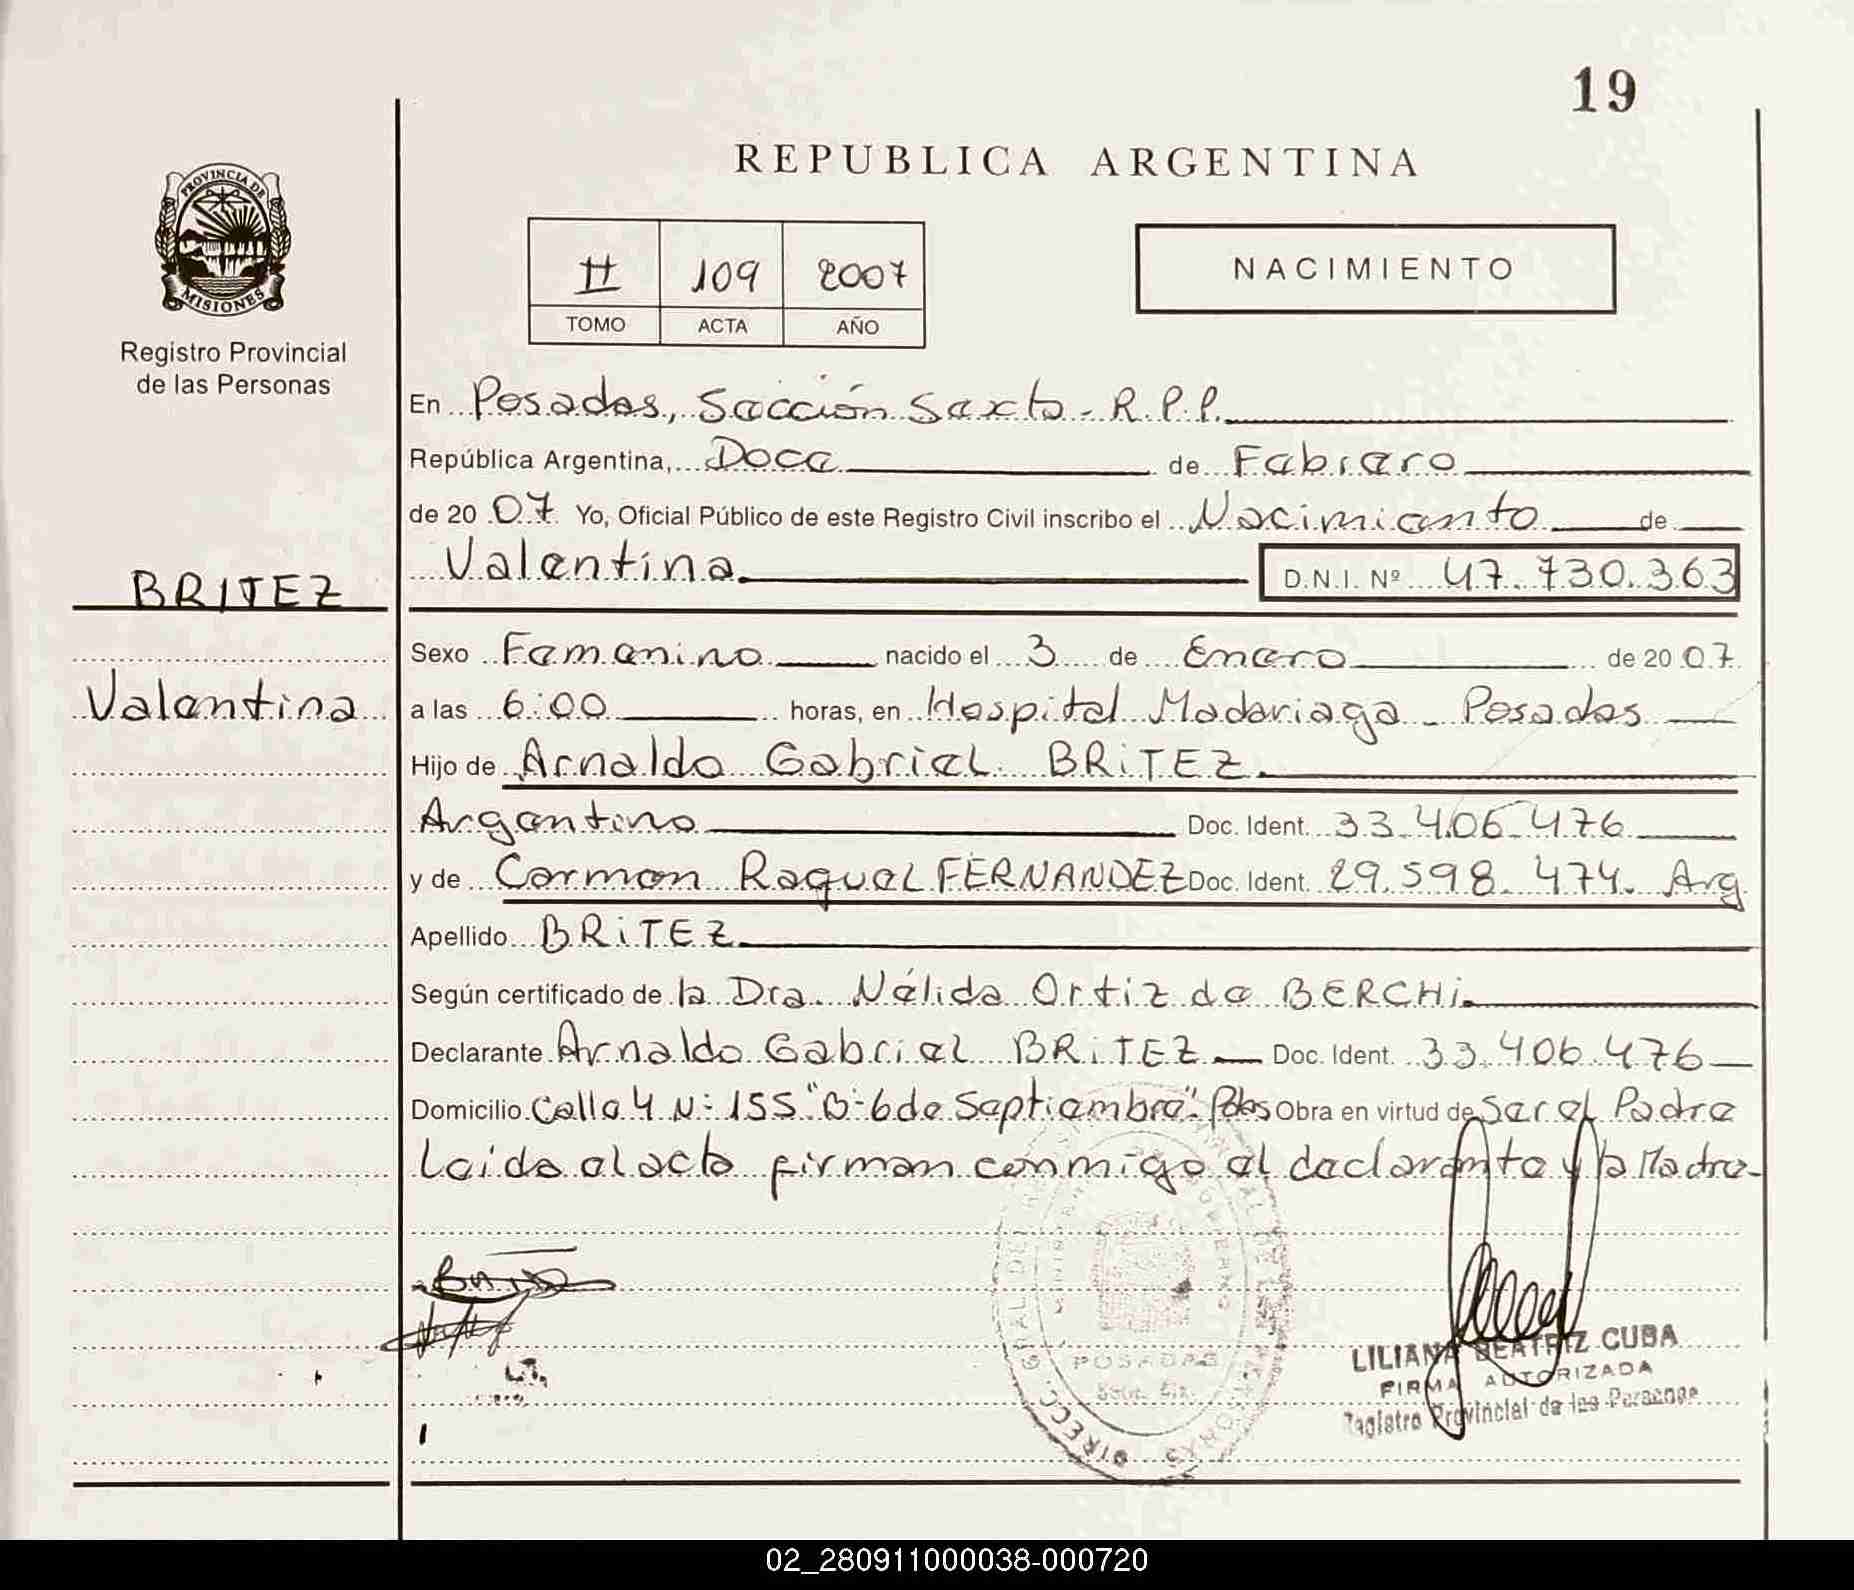 19
REPUBLICA ARGENTINA
PROVINCIA DE
MISIONES
Registro Provincial
de las Personas
II 109 2007
TOMO ACTA AÑO
NACIMIENTO
En Posadas, Sección Sexta - R.P.P.
República Argentina, Doce de Febrero
de 2007 Yo, Oficial Público de este Registro Civil inscribo el Nacimiento de
Valentina D.N.I. Nº 47.730.363
BRITEZ
Sexo Femenino nacido el 3 de Enero de 2007
Valentina
a las 6:00 horas, en Hospital Madariaga - Posadas
Hijo de Arnaldo Gabriel BRITEZ
Argentino Doc. Ident. 33.406.476
y de Carmen Raquel FERNANDEZ Doc. Ident. 29.598.474. Arg
Apellido BRITEZ
Según certificado de la Dra. Nélida Ortiz de BERCHI
Declarante Arnaldo Gabriel BRITEZ Doc. Ident. 33.406.476
Domicilio Calle 4 Nº 155 "Bº 6 de Septiembre". Pdas Obra en virtud de Ser el Padre
Leída el acta firman conmigo el declarante y la Madre-
POSADAS
LILIANA BEATRIZ CUBA
FIRMA AUTORIZADA
Registro Provincial de las Personas
02_280911000038-000720